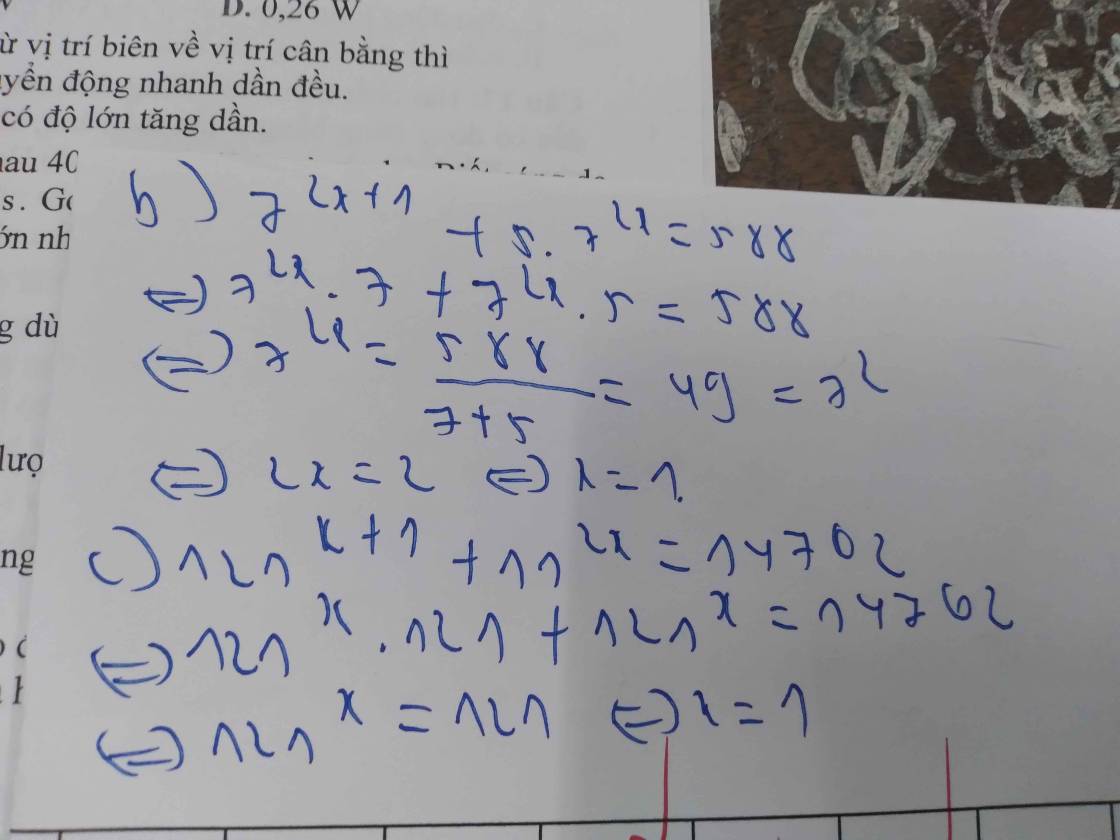 D. 0,26 W
ừ vị trí biên về vị trí cân bằng thì
yển động nhanh dần đều.
có độ lớn tăng dần.
au 40
s. Gọ
ớn nh
g dù
lượ
ng
b) 7^{2x+1} + 5.7^{2x} = 588
⇔ 7^{2x}.7 + 7^{2x}.5 = 588
⇔ 7^{2x} = \frac{588}{7+5} = 49 = 7^2
⇔ 2x = 2 ⇔ x = 1.
c) 121^{x+1} + 11^{2x} = 14762
⇔ 121^x.121 + 121^x = 14762
⇔ 121^x = 121 ⇔ x = 1